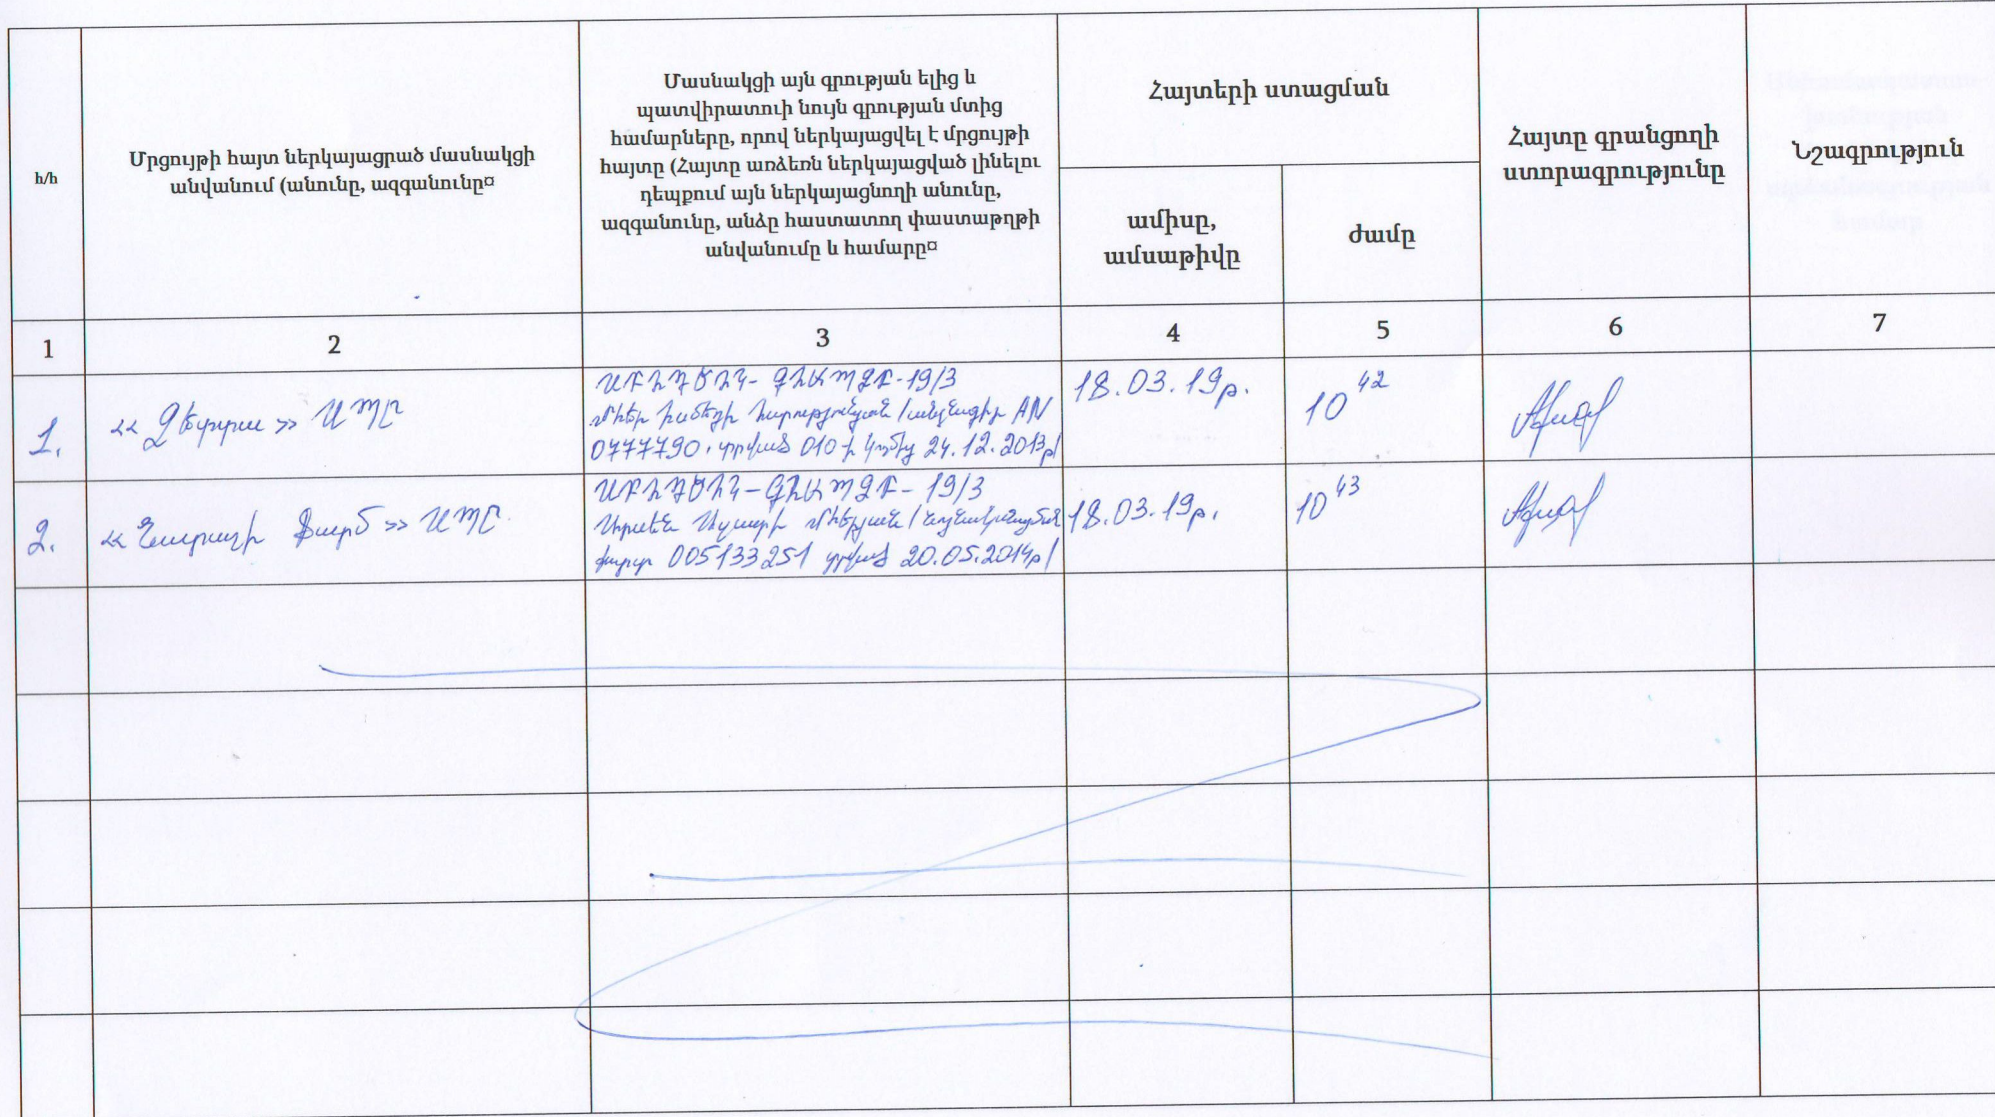 հ/հ
Մրցույթի հայտ ներկայացրած մասնակցի
անվանում (անունը, ազգանունը¤
Մասնակցի այն գրության ելից և
պատվիրատուի նույն գրության մտից
համարները, որով ներկայացվել է մրցույթի
հայտը (Հայտը առձեռն ներկայացված լինելու
դեպքում այն ներկայացնողի անունը,
ազգանունը, անձը հաստատող փաստաթղթի
անվանումը և համարը¤
Հայտերի ստացման
ամիսը,
ամսաթիվը
ժամը
Հայտը գրանցողի
ստորագրությունը
Նշագրություն
1 2 3 4 5 6 7
1.
<< Զետտա >> ՍՊԸ
19/3
Մհեր Համեդի Հարությունյան /անձնագիր AN
0777790, տրված 010-ի կողմից 24.12.2013թ/
18.03.19թ.
10 42
2.
<< Նատալի Ֆարմ >> ՍՊԸ.
19/3
005133251 տրված 20.05.2014թ/
18.03.19թ.
10 43